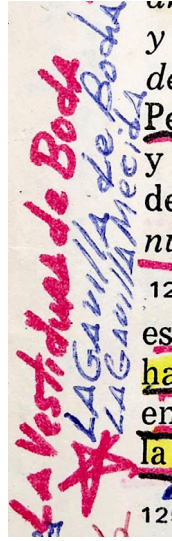 La Vestidura de Boda
LA GAVILLA de Boda
LA GAVILLA Mecida
y
de
Pe
y
de
nu
12
es
ha
en
la
125